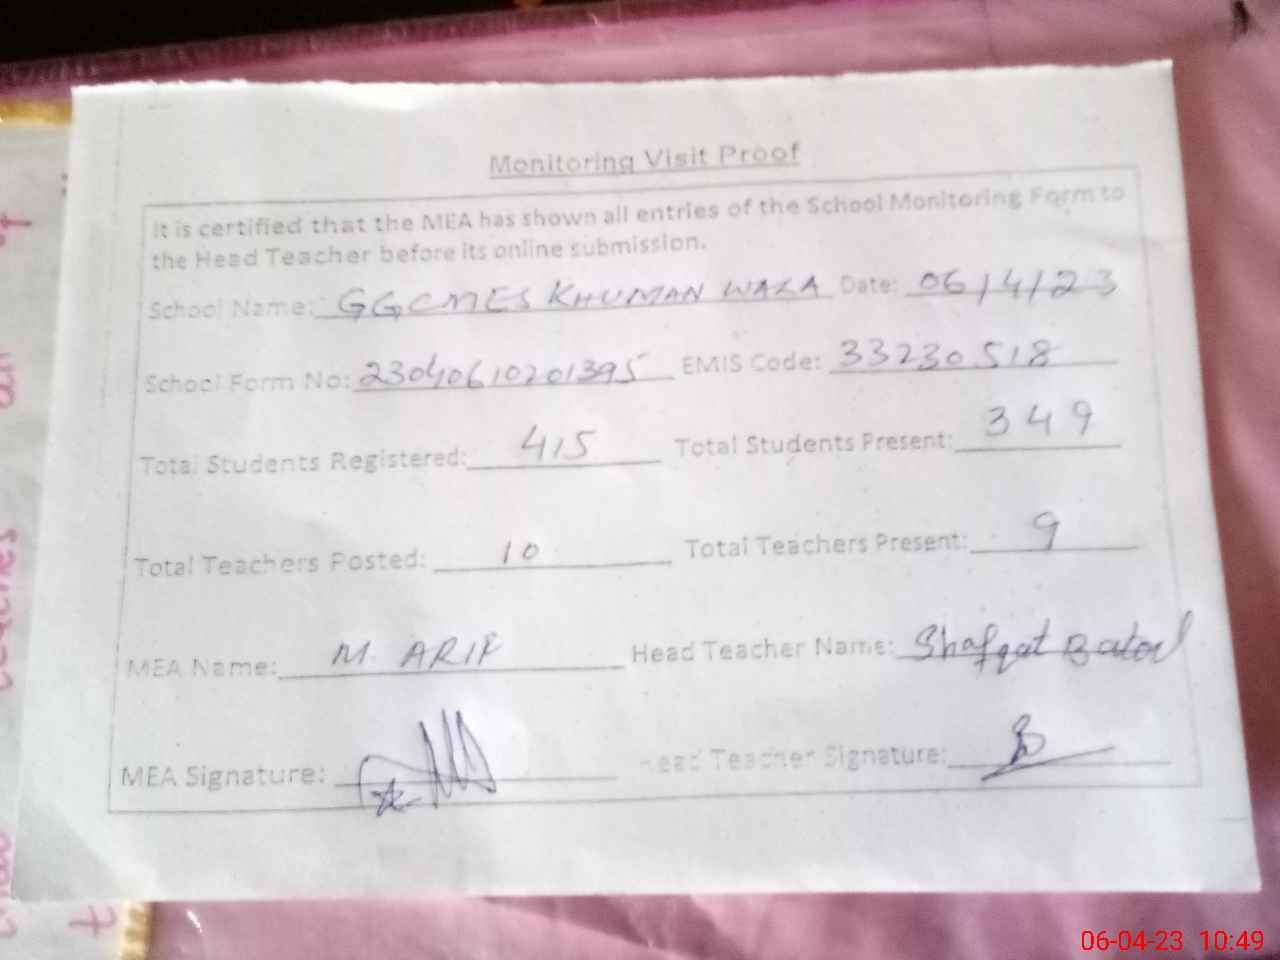 Monitoring Visit Proof
It is certified that the MEA has shown all entries of the School Monitoring Form to
the Head Teacher before its online submission.
School Name: GGCMES KHUMAN WALA Date: 06/4/23
School Form No: 23040610201395 EMIS Code: 33230518
Total Students Registered: 415 Total Students Present: 349
Total Teachers Posted: 10 Total Teachers Present: 9
MEA Name: M. ARIF Head Teacher Name: Shafqat Batool
MEA Signature: Head Teacher Signature:
06-04-23 10:49